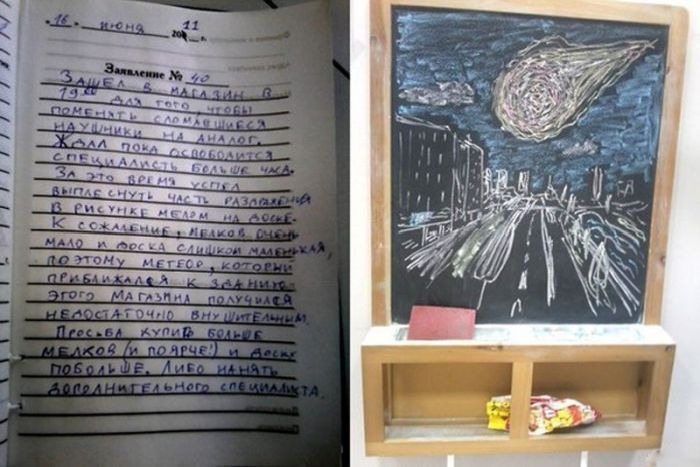 16 июня 2011 г.
Заявление № 40
Зашел в магазин в
19:00 для того чтобы
поменять сломавшиеся
наушники на аналог.
Ждал пока освободится
специалисть больше часа.
За это время успел
выплеснуть часть раздражения
в рисунке мелом на доске.
К сожалению, мелков очень
мало и доска слишком маленькая,
поэтому метеор, который
приближался к зданию
этого магазина получился
недостаточно внушительным.
Просьба купить больше
мелков (и поярче!) и доску
побольше. Либо нанять
дополнительного специалиста.